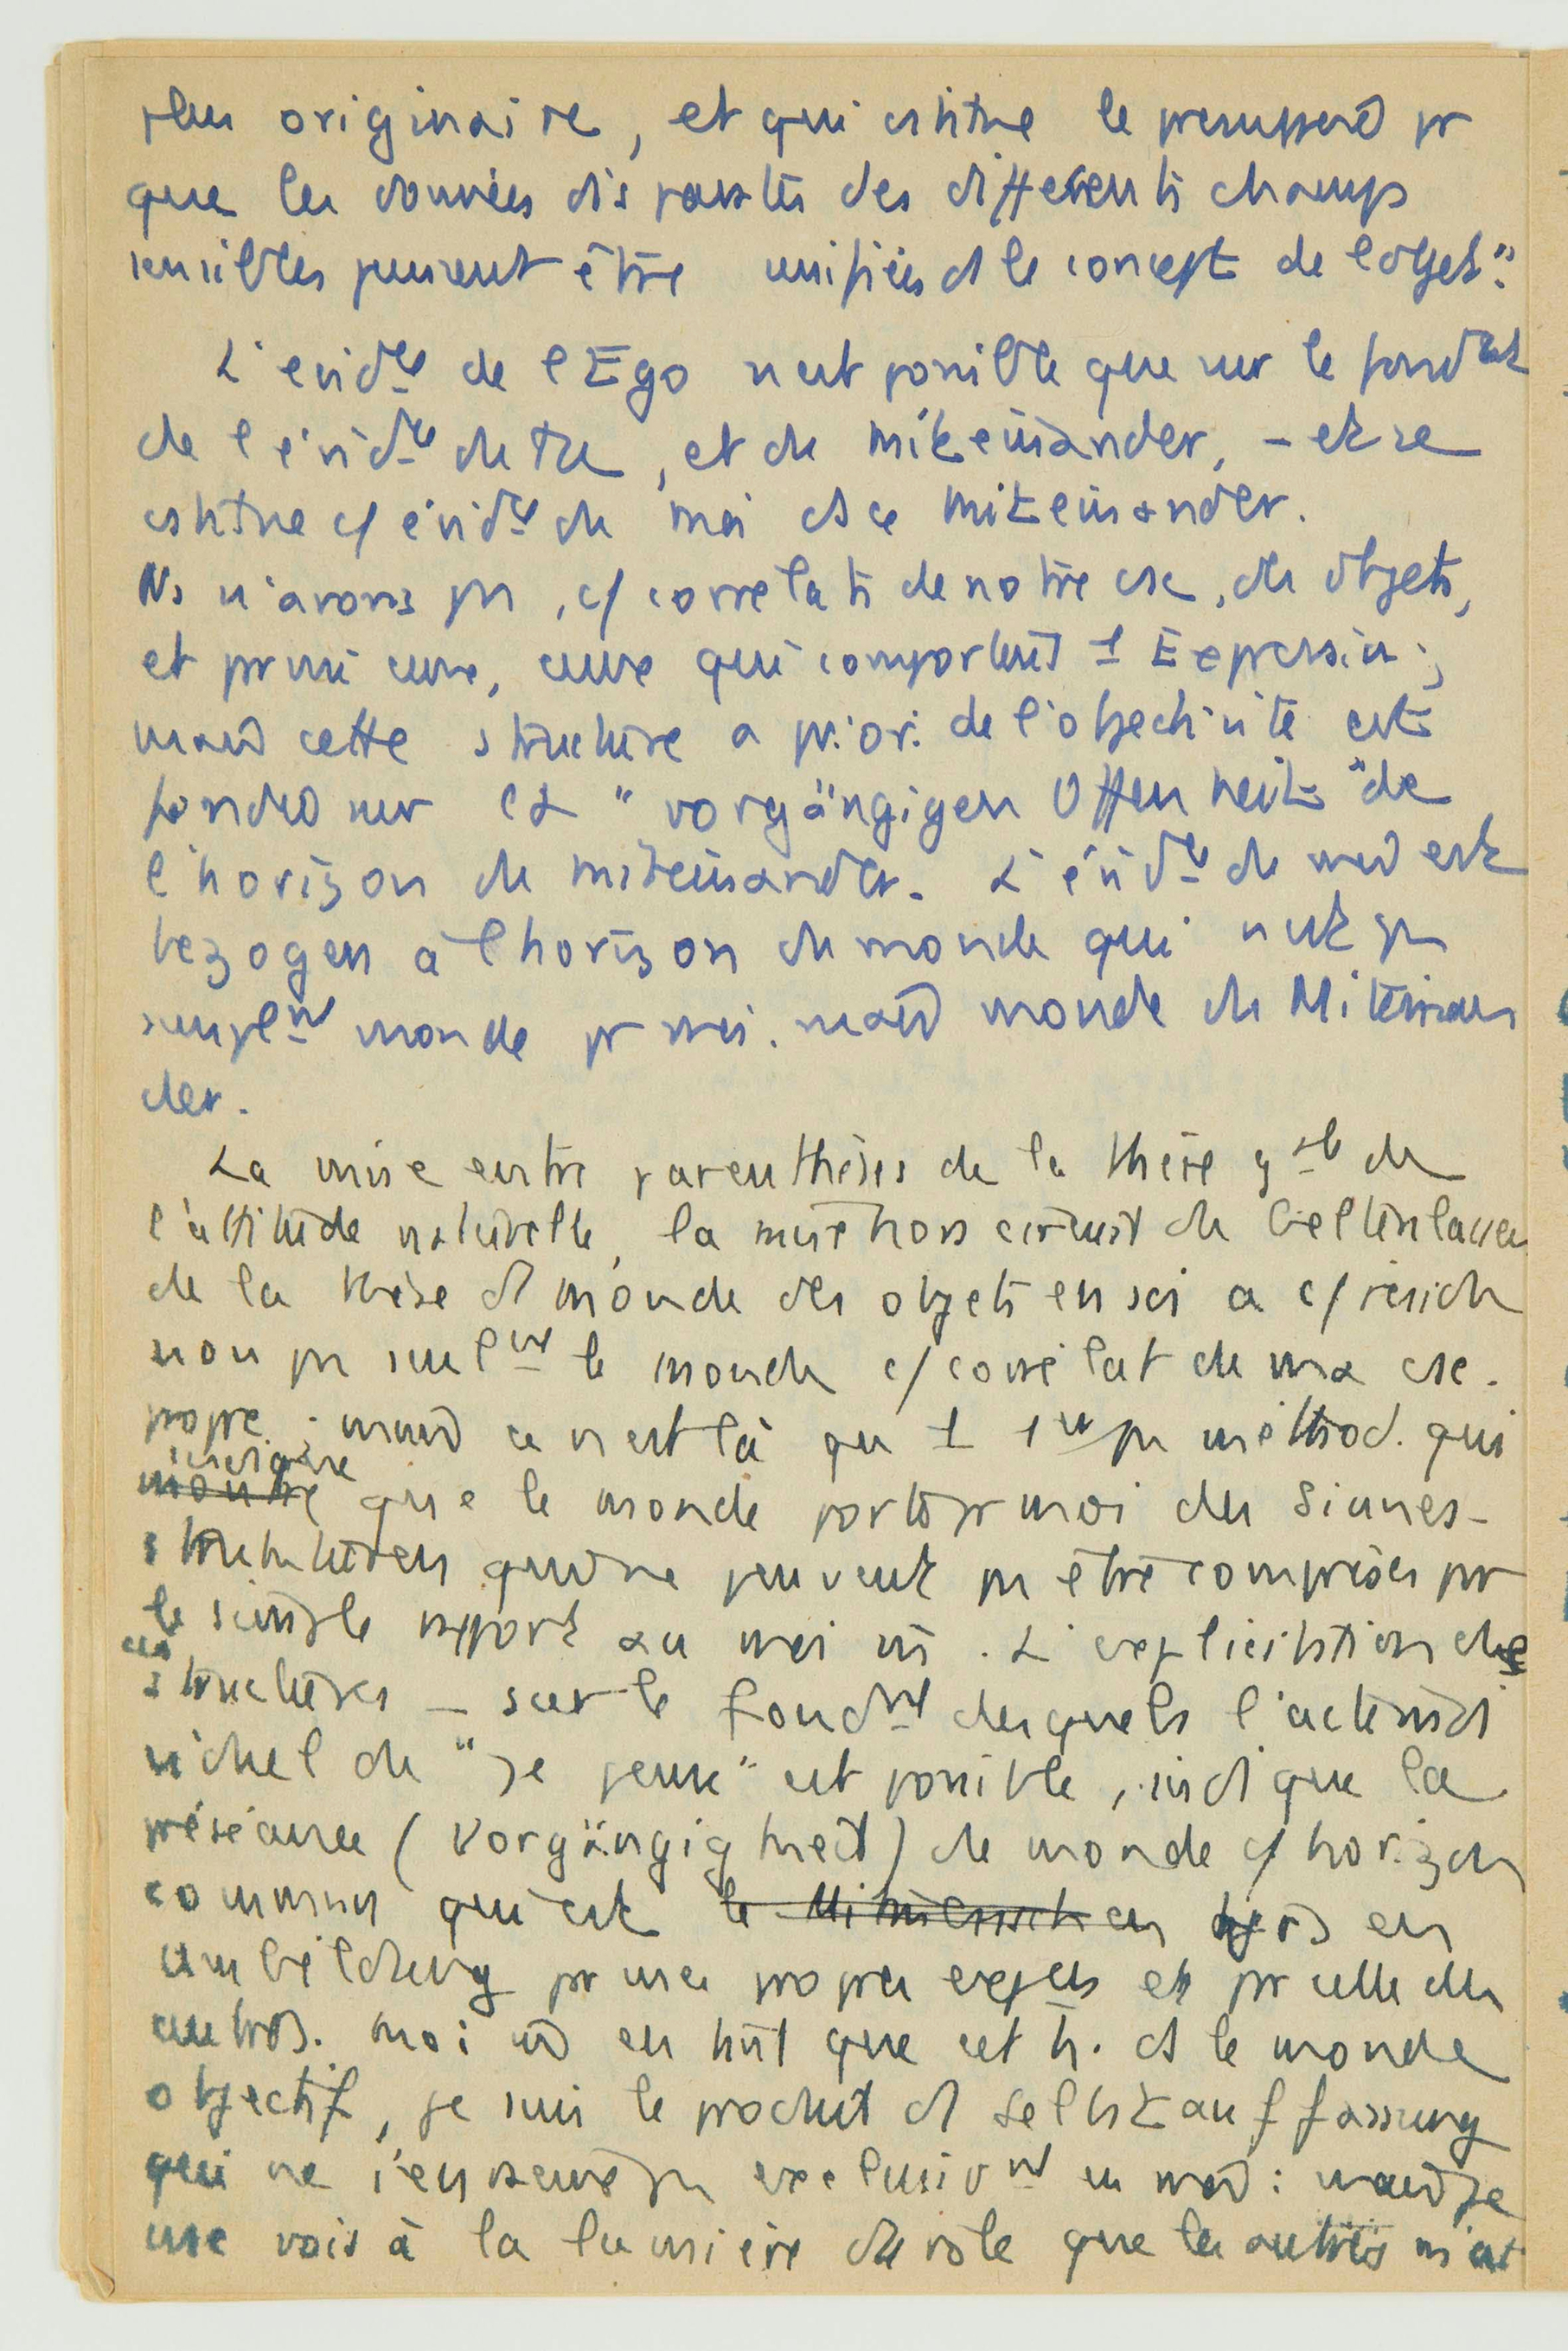 plus originaire, et qui cstitue le presupposé pr
que les données disparates des différents champs
sensibles peuvent être unifiées ds le concept de l'objet".
L'evidce de l'Ego n'est possible que sur le fondmt
de l'évidce du tu, et du miteinander, - et se
cstitue c/ évidce du moi ds ce miteinander.
Ns n'avons pas, c/ correlats de notre csc, des objets,
et parmi eux, ceux qui comportent 1 Expression ;
mais cette structure a priori de l'objectivité est
fondée sur la "vorgängigen Offenheit" de
l'horizon du miteinander. L'évidce du moi est
bezogen à l'horizon du monde qui n'est pas
seulemt monde pr moi. mais monde du Miteinan
der.
La mise entre parenthèses de la thèse gale de
l'attitude naturelle, la mise hors circuit du Geltenlassen
de la thèse d'1 monde des objets en soi a c/ résidu
non pas seulemt le monde c/ corrélat de ma csc.
propre ; mais ce n'est là qu'1 1er pas méthod. qui
~~montre~~ indique que le monde porte pr moi des Sinnes-
strukturen qui ne peuvent pas être comprises par
le simple rapport au moi . L'explicitation de
ces structures - sur le fondmt desquels l'acte indi
viduel du "je pense" est possible, indique la
préséance (Vorgängigkeit) du monde c/ horizon
commun qui est en
umbildung par mes propres exp et par celle des
autres. Moi en tant que cet h. ds le monde
objectif, je suis le produit d' Selbstauffassung
qui ne s'enracine pas exclusivmt en moi : mais je
me vois à la lumière du rôle que les autres m'ont